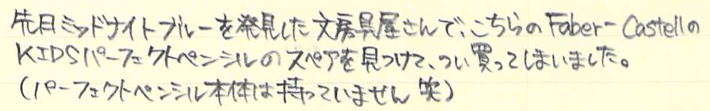 先日ミッドナイトブルーを発見した文房具屋さんで、こちらのFaber-Castellの
KIDSパーフェクトペンシルのスペアを見つけて、つい買ってしまいました。
(パーフェクトペンシル本体は持っていません 笑)